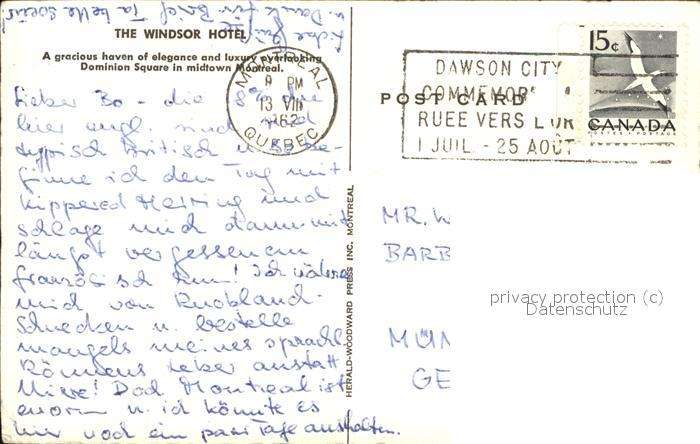 THE WINDSOR HOTEL
A gracious haven of elegance and luxury overlooking
Dominion Square in midtown Montreal.
MONTREAL
9 PM
13 VIII
1962
QUEBEC
DAWSON CITY
COMMEMOR
RUEE VERS L'OR
1 JUIL - 25 AOÛT
15¢
CANADA
POSTES POSTAGE
POST CARD
Lieber Bo - die
hier engl. sind
typisch britisch u. so be-
ginne ich den Tag mit
kippered Herring und
schlage mich dann mit
längst vergessenem
französisch rum! Ich nähre
mich von Knobland-
Schnecken u. bestelle
mangels meines sprachl.
Könnens Leber anstatt
Niere! Doch Montreal ist
enorm u. ich könnte es
hier noch ein paar Tage aushalten.
u. Dank für Brief Ta belle soeur!
HERALD-WOODWARD PRESS INC. MONTREAL
MR. W
BARB
MÜN
GE
privacy protection (c)
Datenschutz